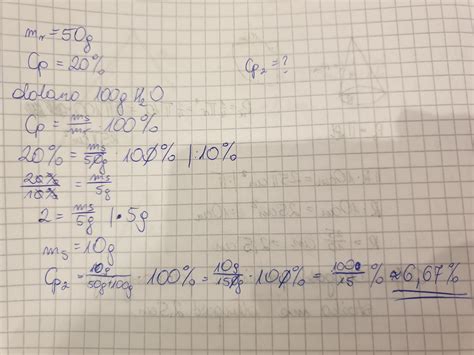 mr = 50g
Cp = 20%
Cp2 = ?
dolano 100g H2O
Cp = ms/mr · 100%
20% = ms/50g · 100% | · 10%
20%/10% = ms/5g
2 = ms/5g | · 5g
ms = 10g
Cp2 = 10g/50g+100g · 100% = 10g/150g · 100% = 100/15 % ≈ 6,67%